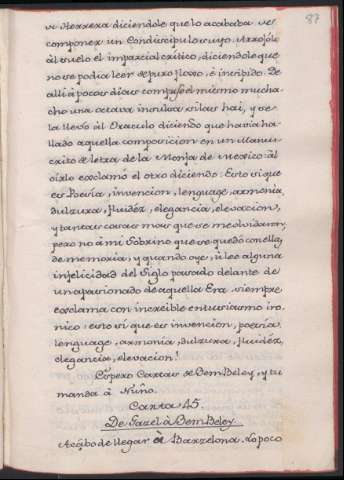 87
vi Herrera diciendole que lo acababa de
componer un Condiscipulo suyo. Arrojóle
al suelo el imparcial critico, diciendole que
no se podia leer de puro flojo, é insipido. De
alli à pocos dias compuso el mismo mucha-
cho una octava insulsa si las hai, y se
la llevó al Oraculo diciendo que havia ha-
llado aquella composicion en un Manus-
crito de letra de la Monja de Mexico: al
oirlo exclamó el otro diciendo: Esto si que
es Poesia, invencion, lenguage, armonia,
dulzura, fluidéz, elegancia, elevacion,
y tantas cosas mas que se me olvidaron;
pero no à mi Sobrino que se quedó con ellas
de memoria, y quando oye, ù lee alguna
infelicidad del Siglo pasado delante de
un apasionado de aquella Era siempre
exclama con increible entusiasmo iro-
nico: esto si que es invencion, poesia,
lenguage, armonia, dulzura, fluidéz,
elegancia, elevacion!
Espero Cartas de Ben Beley, y tu
manda à Nuño.
Carta 45.
De Gazel à Ben Beley.
Acabo de llegar à Barzelona. Lo poco